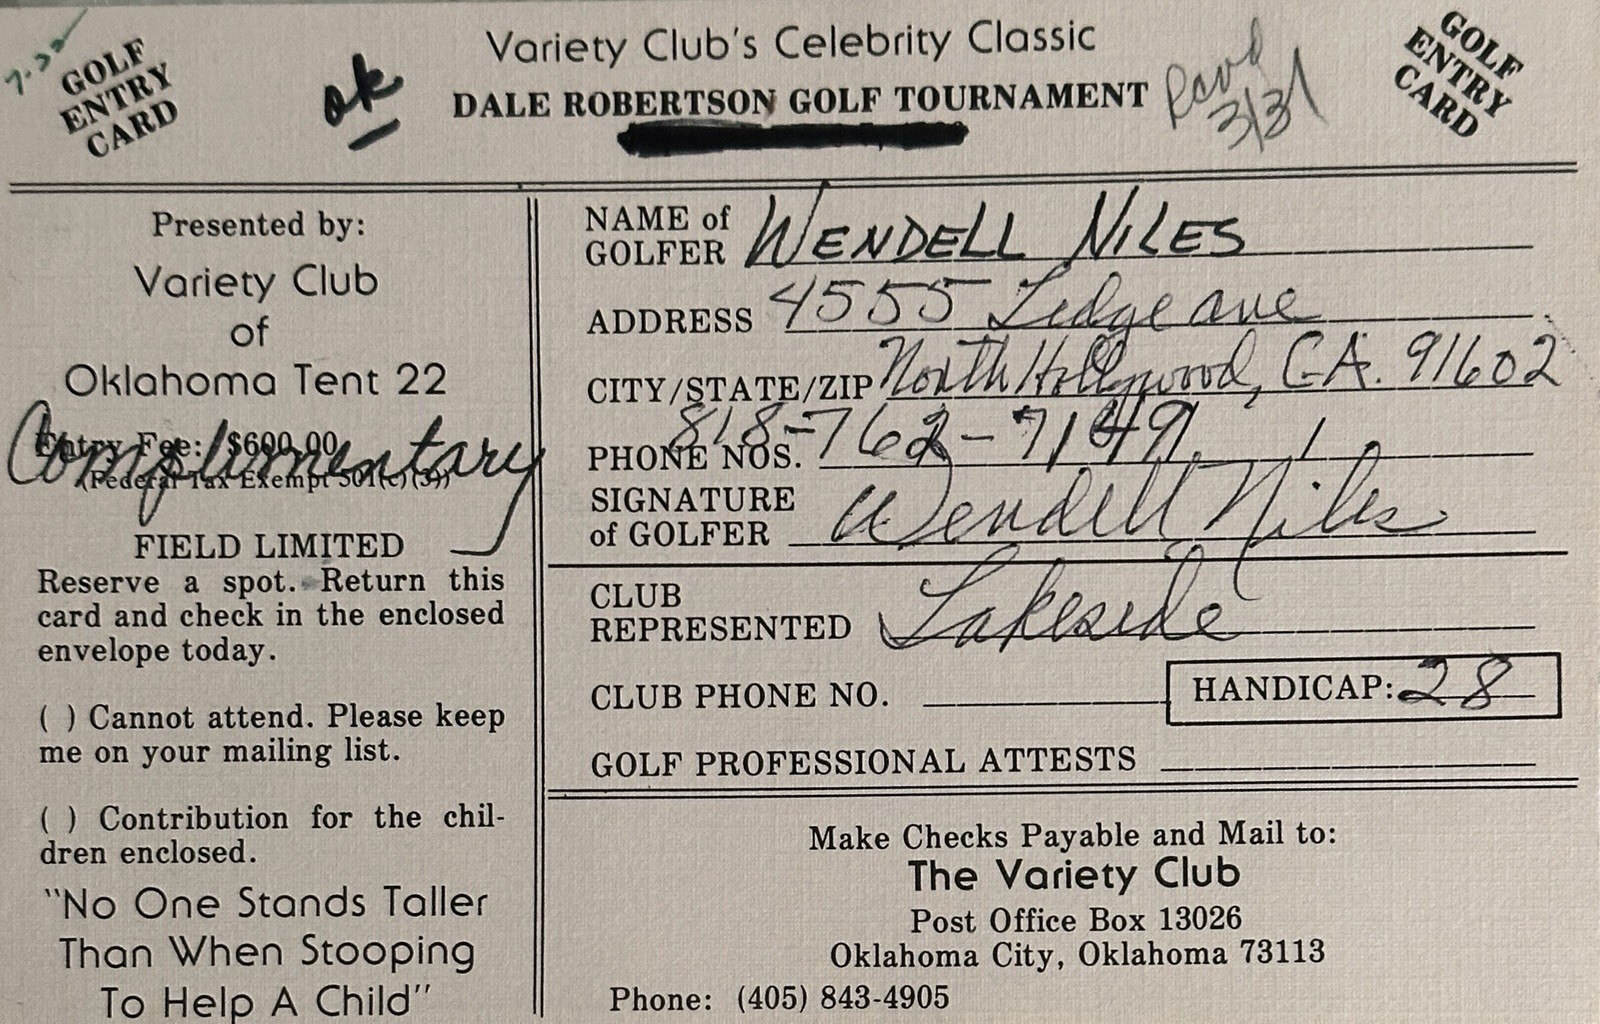 7-22
GOLF
ENTRY
CARD
ok
Variety Club's Celebrity Classic
DALE ROBERTSON GOLF TOURNAMENT
Rcvd
3/31
GOLF
ENTRY
CARD
Presented by:
Variety Club
of
Oklahoma Tent 22
Entry Fee: $600.00
Complimentary
(Federal Tax Exempt 501(c)(3))
FIELD LIMITED
Reserve a spot. Return this
card and check in the enclosed
envelope today.
( ) Cannot attend. Please keep
me on your mailing list.
( ) Contribution for the chil-
dren enclosed.
"No One Stands Taller
Than When Stooping
To Help A Child"
NAME of
GOLFER WENDELL NILES
ADDRESS 4555 Ledge ave
CITY/STATE/ZIP North Hollywood, CA. 91602
PHONE NOS. 818-762-7149
SIGNATURE
of GOLFER Wendell Niles
CLUB
REPRESENTED Lakeside
CLUB PHONE NO.
HANDICAP: 28
GOLF PROFESSIONAL ATTESTS
Make Checks Payable and Mail to:
The Variety Club
Post Office Box 13026
Oklahoma City, Oklahoma 73113
Phone: (405) 843-4905